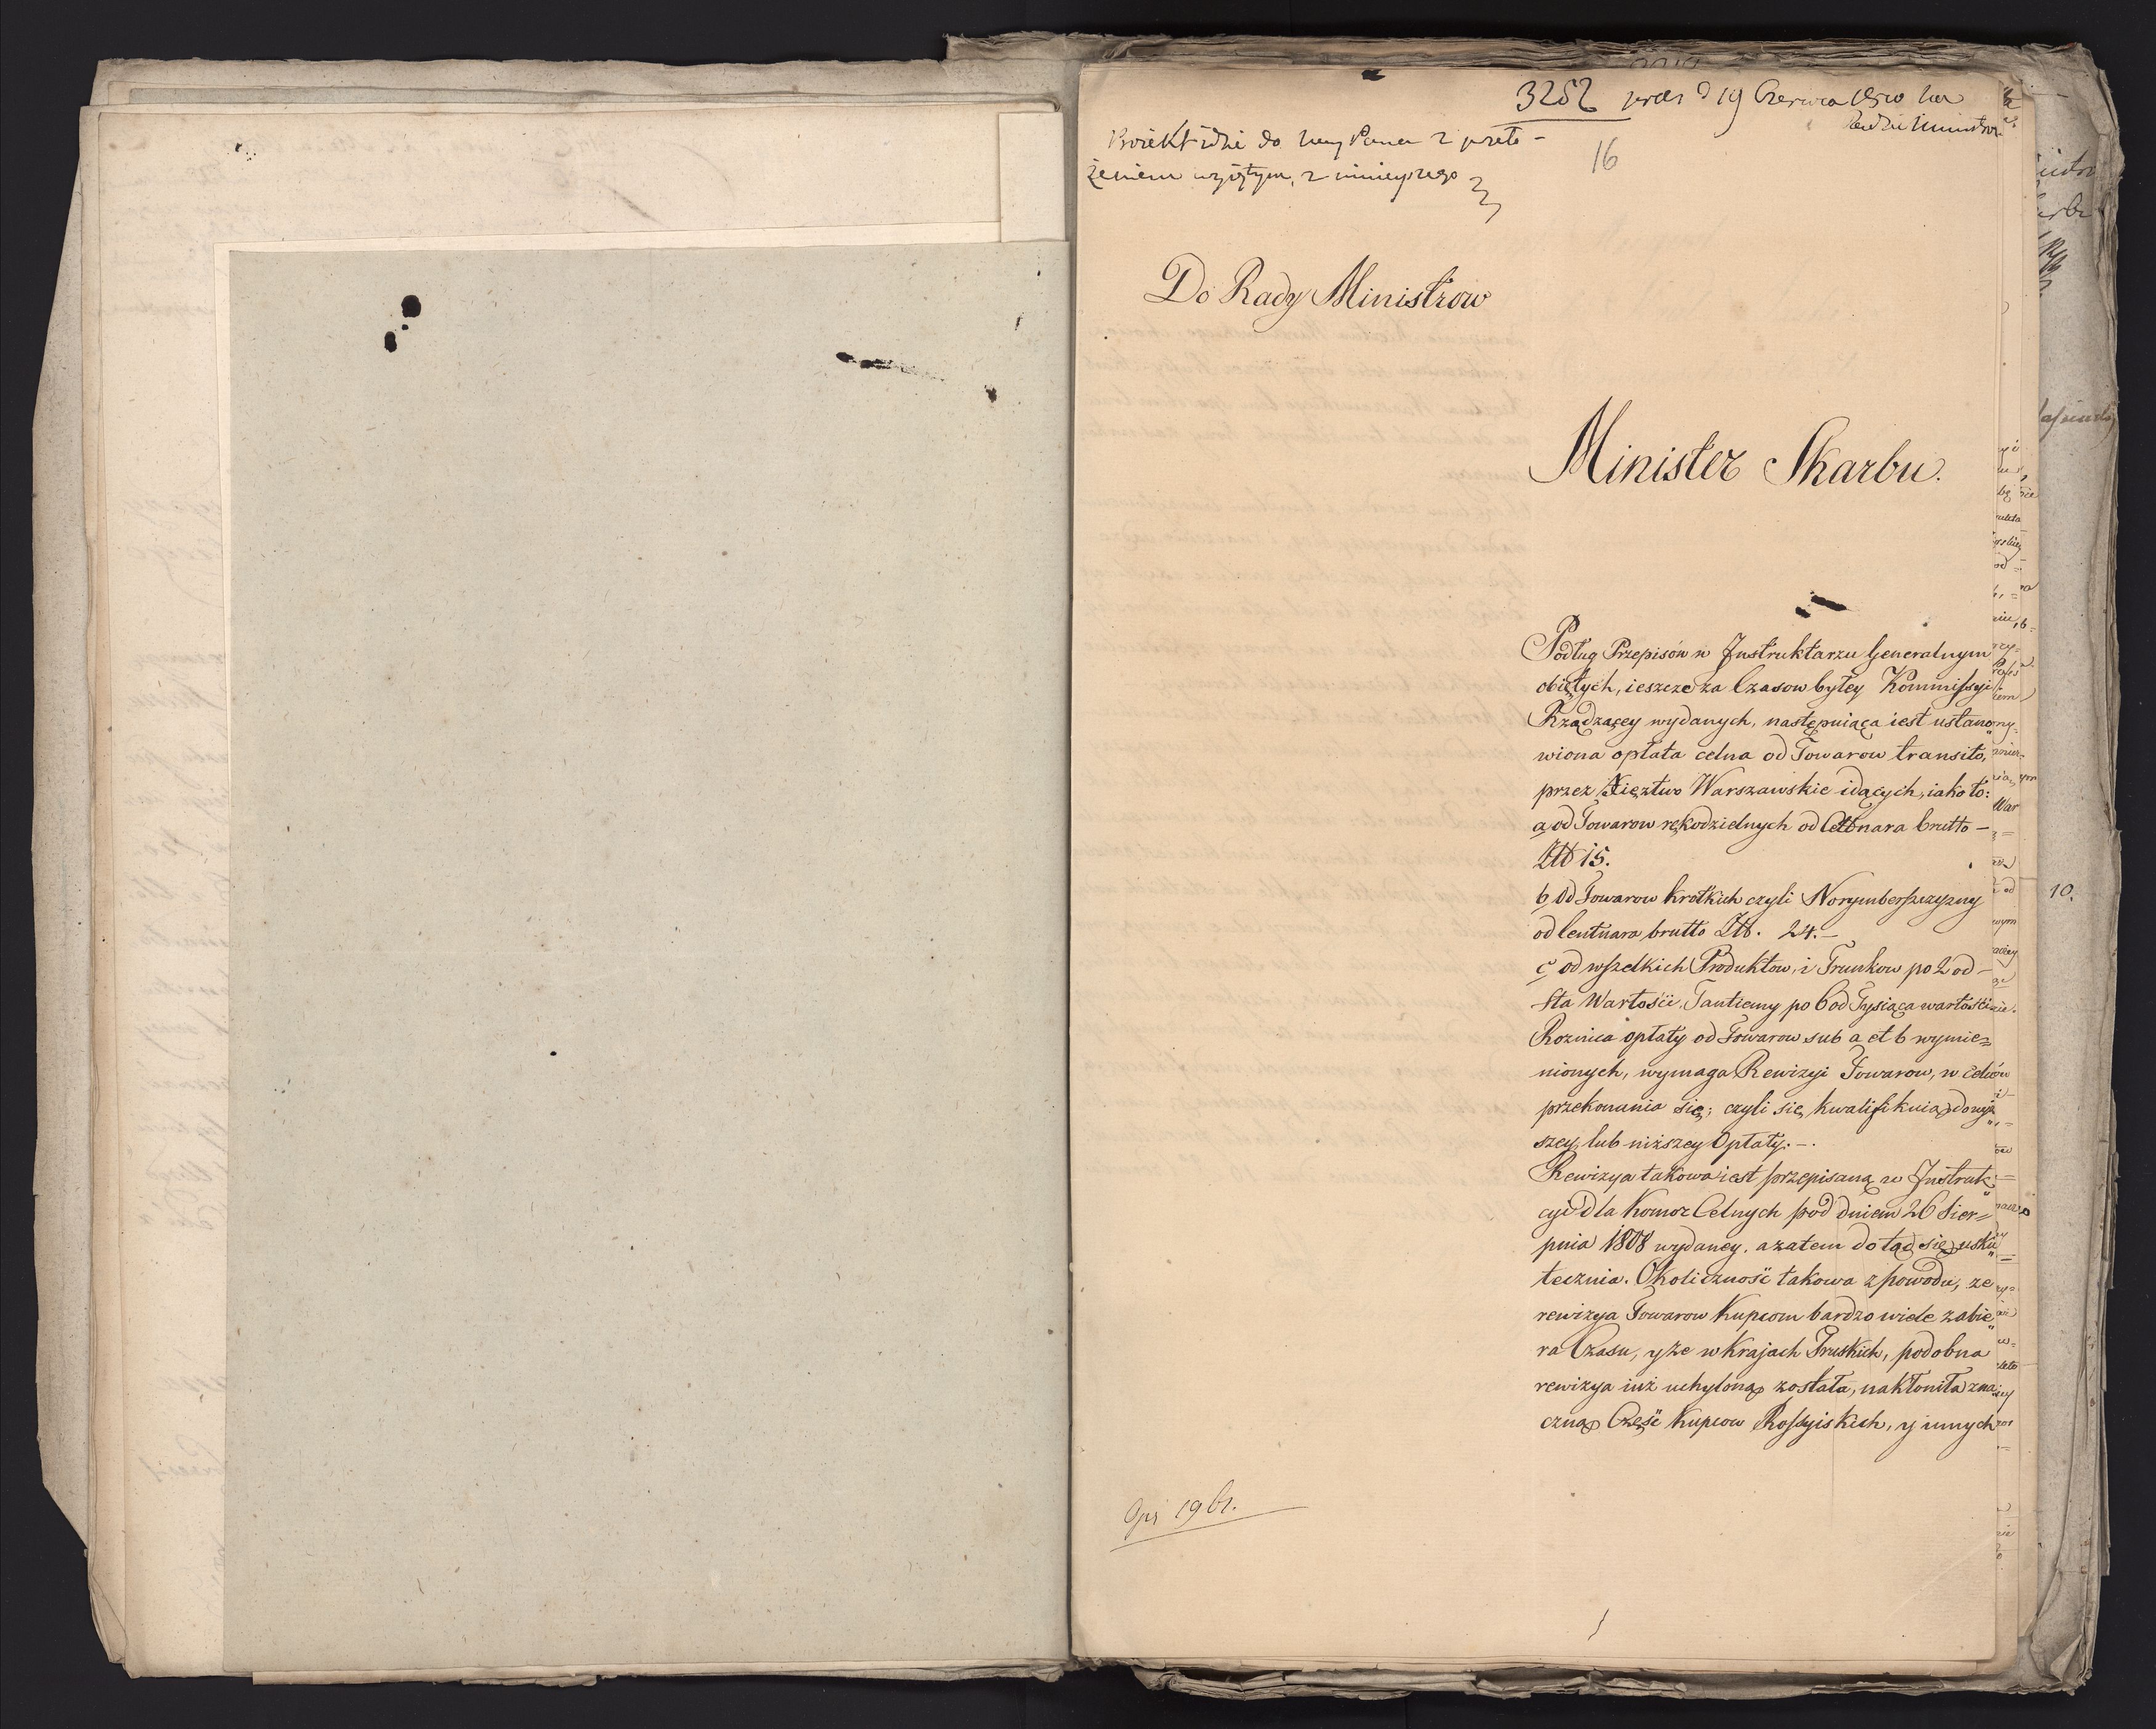 3252 prez d 19 Czerwca 1810 na
Radzie Ministrow
16
Proiekt idzie do Nay Pana z przeło-
żeniem wyiętym, z ninieyszego
Do Rady Ministrow
Minister Skarbu.
Podług Przepisów w Instruktarzu Generalnym
obiętych, ieszcze za Czasow byłey Kommissyi
Rządzącey wydanych, następuiąca iest ustano„
wiona opłata celna od Towarow transito,
przez Xięztwo Warszawskie idących, iako to:
a, od Towarow rękodzielnych od Cetnara brutto —
Złł 15.
b, Od Towarow krotkich czyli Norymberszczyzny
od Centnara brutto Złł. 24.—
c, od wszelkich Produktow, i Trunkow po 2 od —
sta Wartości, Tantiemy po 6 od Tysiąca wartości
Roznica opłaty od Towarow sub a et b wymie=
nionych, wymaga Rewizyi Towarow, w celu
przekonania się; czyli się kwalifikuią do wyż„
szey, lub niższey Opłaty.—.
Rewizya takowa iest przepisaną w Instruk„
cyi dla Komor Celnych pod dniem 26 Sier=
pnia 1808 wydaney. a zatem dotąd się usku„
tecznia. Okoliczność takowa z powodu, ze
rewizya Towarow Kupcom bardzo wiele zabie„
ra Czasu, y że w Krajach Pruskich, podobna
rewizya iuż uchyloną została, nakłoniła zna„
czną Część Kupcow Rossyiskich, y innych
10.